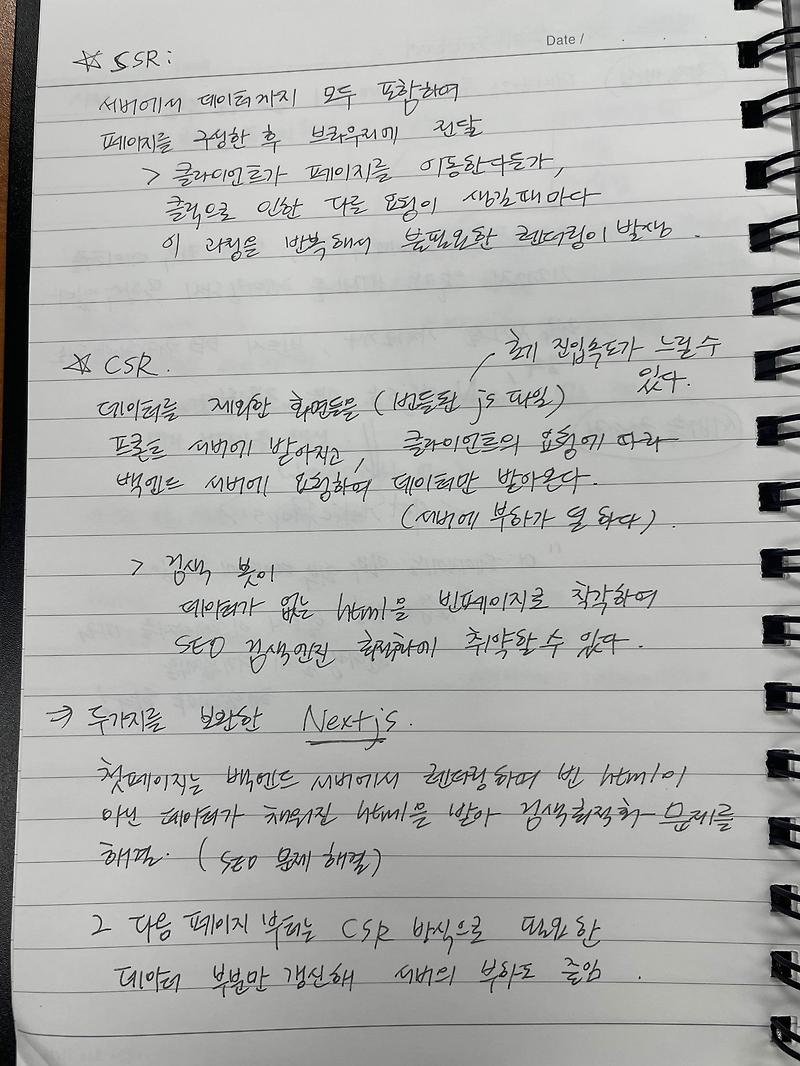 Date /
☆ SSR :
서버에서 데이터까지 모두 포함하여
페이지를 구성한 후 브라우저에 전달
> 클라이언트가 페이지를 이동한다든가,
클릭으로 인한 다른 요청이 생길때마다
이 과정을 반복해서 불필요한 렌더링이 발생 .
☆ CSR .
초기 진입속도가 느릴 수
있다.
데이터를 제외한 화면들을 (번들된 js 파일)
프론트 서버에 받아지고, 클라이언트의 요청에 따라
백엔드 서버에 요청하여 데이터만 받아온다.
(서버에 부하가 덜 하다) .
> 검색 봇이
데이터가 없는 html을 빈페이지로 착각하여
SEO 검색엔진 최적화에 취약할 수 있다 .
⇒ 두가지를 보완한 Nextjs .
첫페이지는 백엔드 서버에서 렌더링하며 빈 html이
아닌 데이터가 채워진 html을 받아 검색최적화 문제를
해결. ( SEO 문제 해결)
그 다음 페이지 부터는 CSR 방식으로 필요한
데이터 부분만 갱신해 서버의 부하도 줄임 .